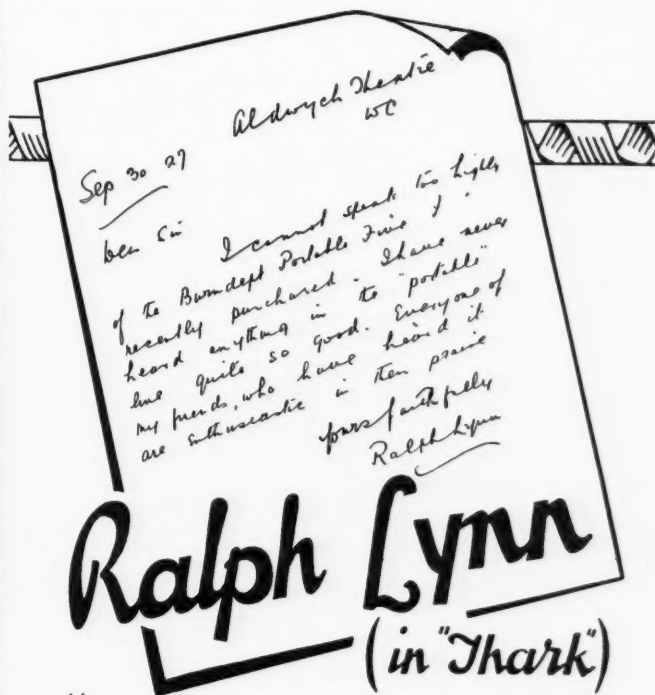 Aldwych Theatre
WC
Sep 30 27
Dear Sir I cannot speak too highly
of the Burndept Portable Five I
recently purchased. I have never
heard anything in the "portable"
line quite so good. Everyone of
my friends, who have heard it
are enthusiastic in their praise
Yours faithfully
Ralph Lynn
Ralph Lynn
(in "Thark")